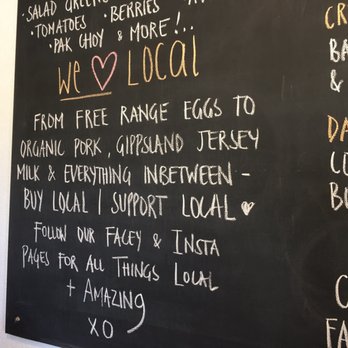 · SALAD GREENS
· TOMATOES · BERRIES
· PAK CHOY & MORE!..
we ♡ LOCAL
FROM FREE RANGE EGGS TO
ORGANIC PORK, GIPPSLAND JERSEY
MILK & EVERYTHING INBETWEEN -
BUY LOCAL | SUPPORT LOCAL ♥
FOLLOW OUR FACEY & INSTA
PAGES FOR ALL THINGS LOCAL
+ AMAZING
XO
CR
BA
&
DA
CO
BO
C
FA